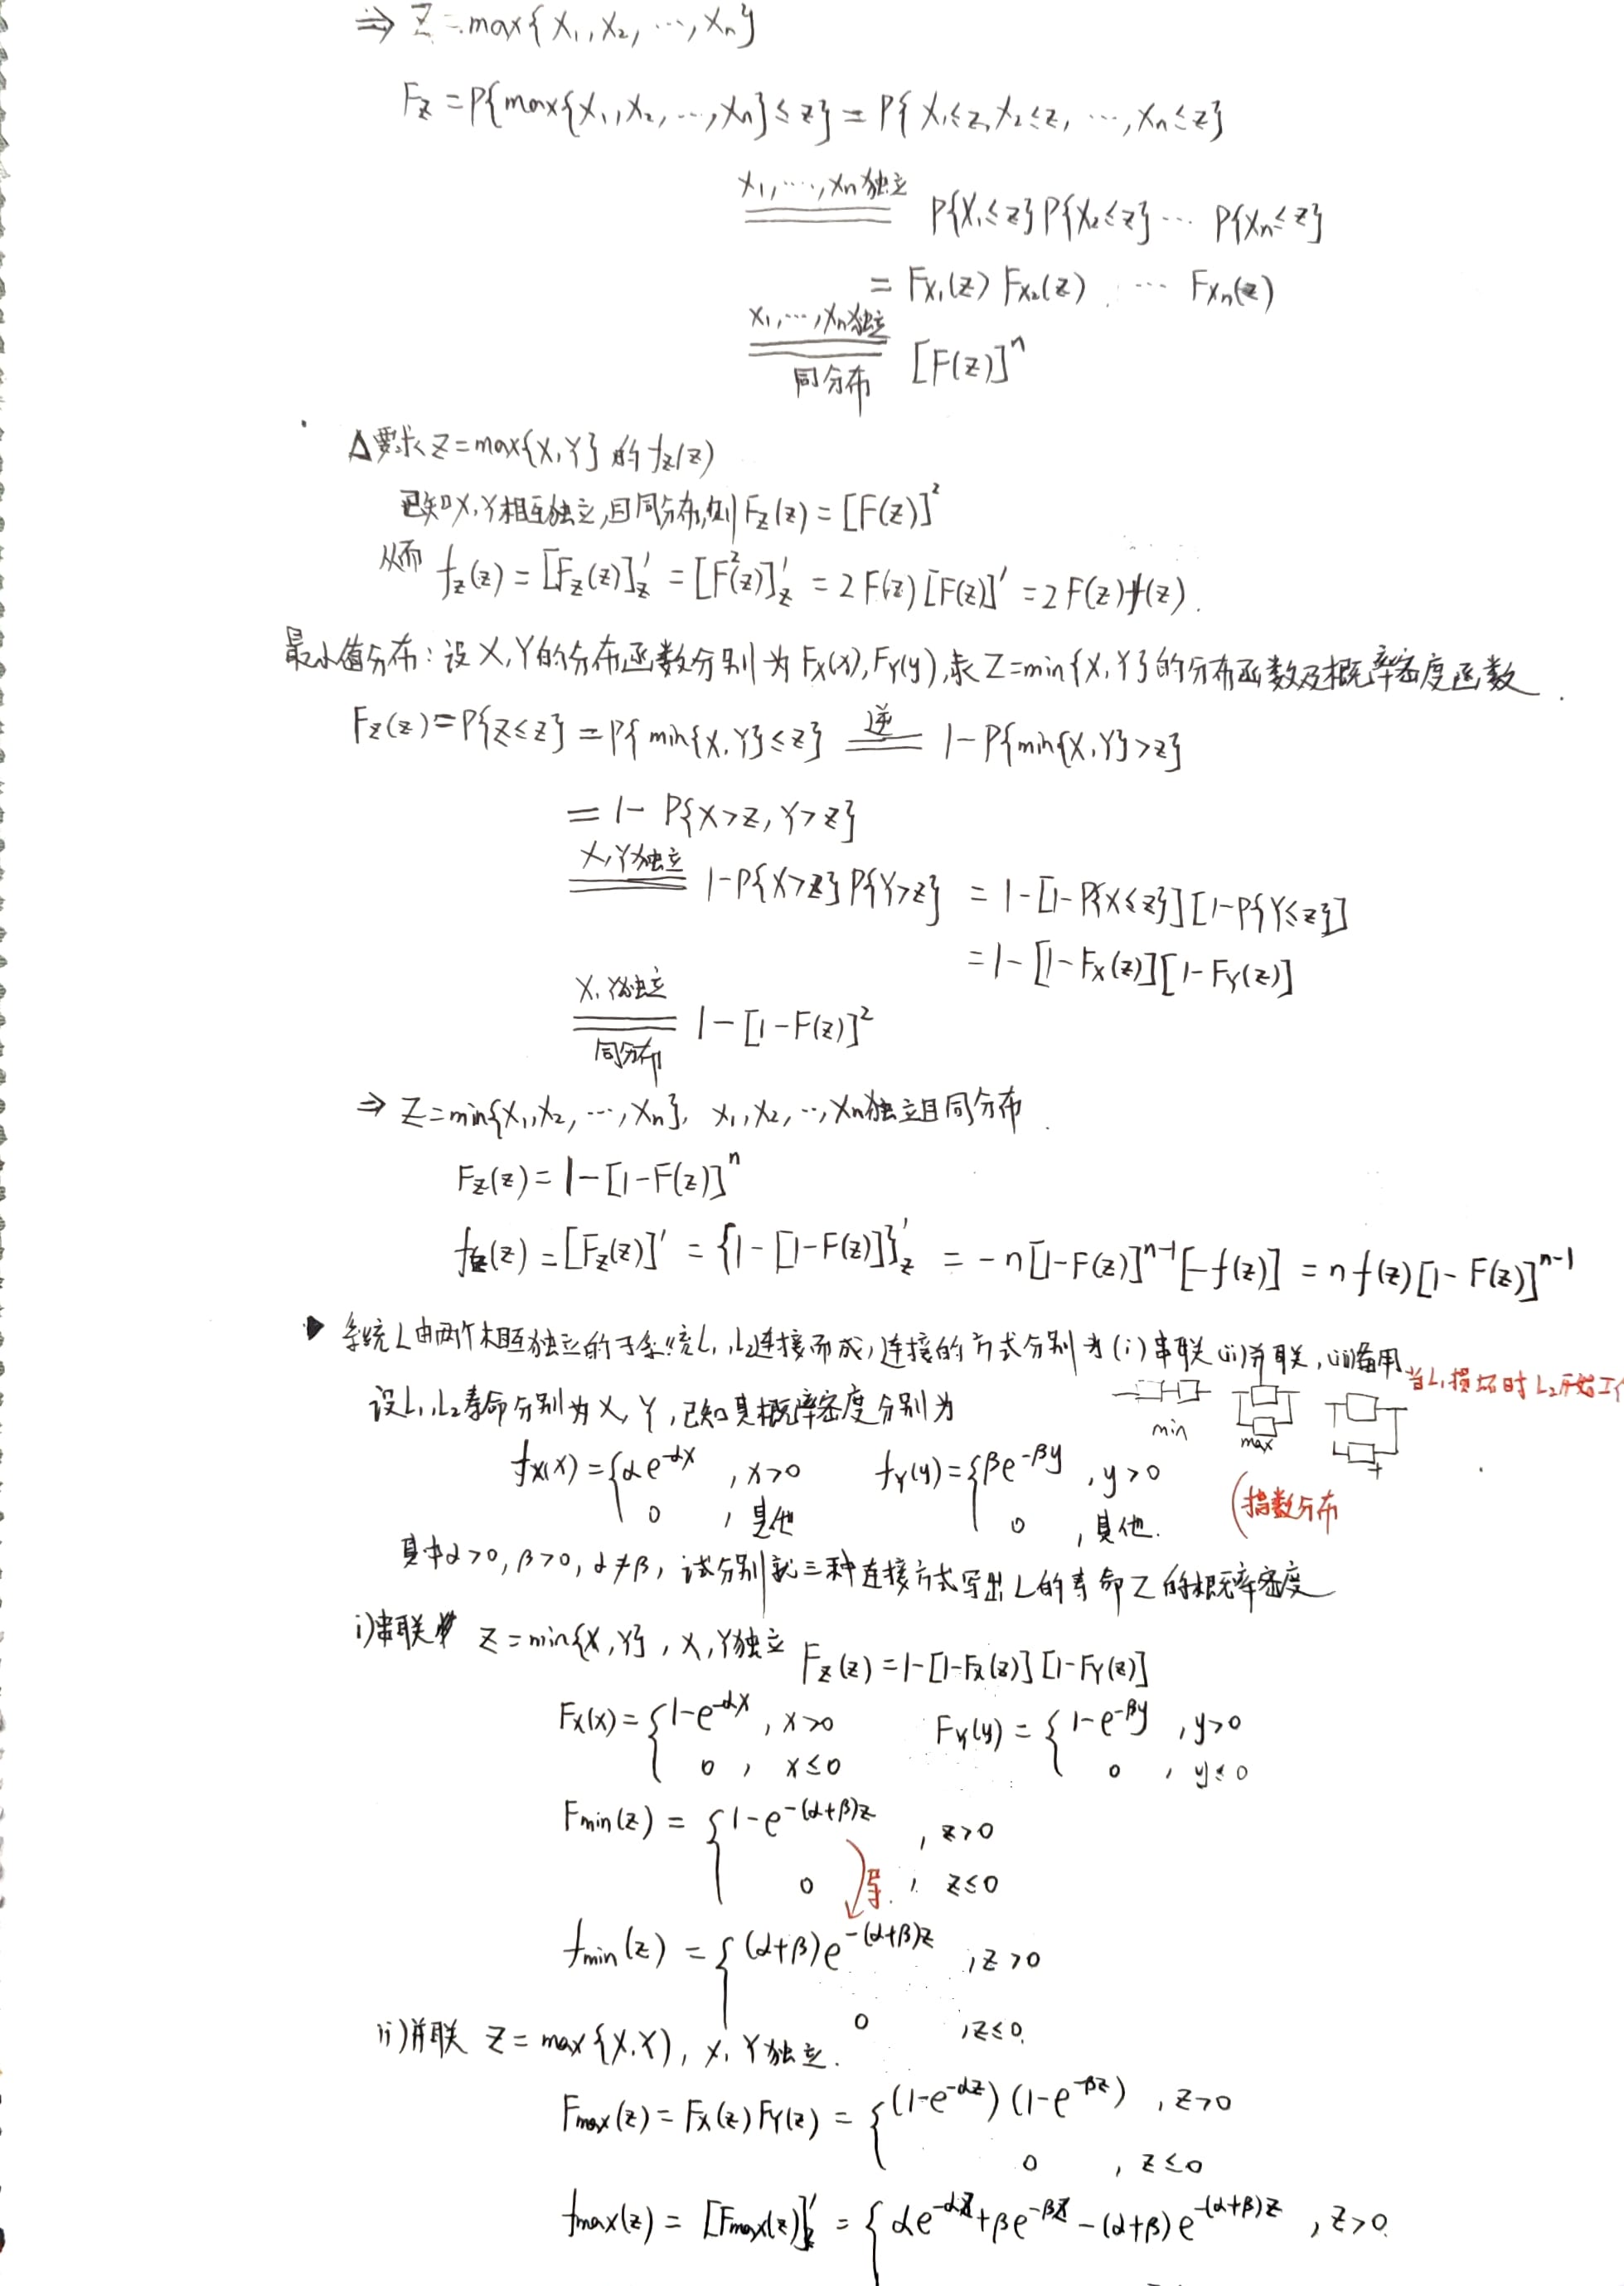 ⇒ Z = max{X₁, X₂, …, Xₙ}
F_Z = P{max{X₁, X₂, …, Xₙ} ≤ z} = P{X₁≤z, X₂≤z, …, Xₙ≤z}
X₁, …, Xₙ独立
══ P{X₁≤z}P{X₂≤z} … P{Xₙ≤z}
= F_X₁(z) F_X₂(z) … F_Xₙ(z)
X₁, …, Xₙ独立
══ [F(z)]ⁿ
同分布
Δ要求 Z = max{X, Y} 的 f_Z(z)
已知X, Y相互独立, 且同分布, 则 F_Z(z) = [F(z)]²
从而 f_Z(z) = [F_Z(z)]'_z = [F²(z)]'_z = 2F(z)[F(z)]' = 2F(z)f(z).
最小值分布: 设X, Y的分布函数分别为F_X(x), F_Y(y), 求Z=min{X, Y}的分布函数及概率密度函数.
F_Z(z) = P{Z≤z} = P{min{X, Y}≤z} ══逆══ 1-P{min{X, Y}>z}
= 1- P{X>z, Y>z}
X, Y独立
══ 1-P{X>z}P{Y>z} = 1-[1-P{X≤z}][1-P{Y≤z}]
= 1-[1-F_X(z)][1-F_Y(z)]
X, Y独立
══ 1-[1-F(z)]²
同分布
⇒ Z=min{X₁, X₂, …, Xₙ}, X₁, X₂, …, Xₙ独立且同分布.
F_Z(z) = 1-[1-F(z)]ⁿ
f_Z(z) = [F_Z(z)]' = {1-[1-F(z)]}'_z = -n[1-F(z)]ⁿ⁻¹[-f(z)] = n f(z)[1-F(z)]ⁿ⁻¹
▶ 系统L由两个相互独立的子系统L₁, L₂连接而成, 连接的方式分别为 (i) 串联 (ii) 并联, (iii) 备用 当L₁损坏时L₂开始工作
设L₁, L₂寿命分别为X, Y, 已知其概率密度分别为 min max +
f_X(x) = { αe^(-αx) , x>0 f_Y(y) = { βe^(-βy) , y>0
0 , 其他 0 , 其他. (指数分布
其中α>0, β>0, α≠β, 试分别就三种连接方式写出L的寿命Z的概率密度
i)串联 Z=min{X, Y}, X, Y独立 F_Z(z) = 1-[1-F_X(z)][1-F_Y(z)]
F_X(x) = { 1-e^(-αx) , x>0 F_Y(y) = { 1-e^(-βy) , y>0
0 , x≤0 0 , y≤0
F_min(z) = { 1-e^(-(α+β)z) , z>0
0 导. , z≤0
f_min(z) = { (α+β)e^(-(α+β)z) , z>0
0 , z≤0.
ii)并联 Z = max{X, Y), X, Y独立.
F_max(z) = F_X(z)F_Y(z) = { (1-e^(-αz))(1-e^(-βz)) , z>0
0 , z≤0
f_max(z) = [F_max(z)]'_z = { αe^(-αz)+βe^(-βz)-(α+β)e^(-(α+β)z) , z>0.